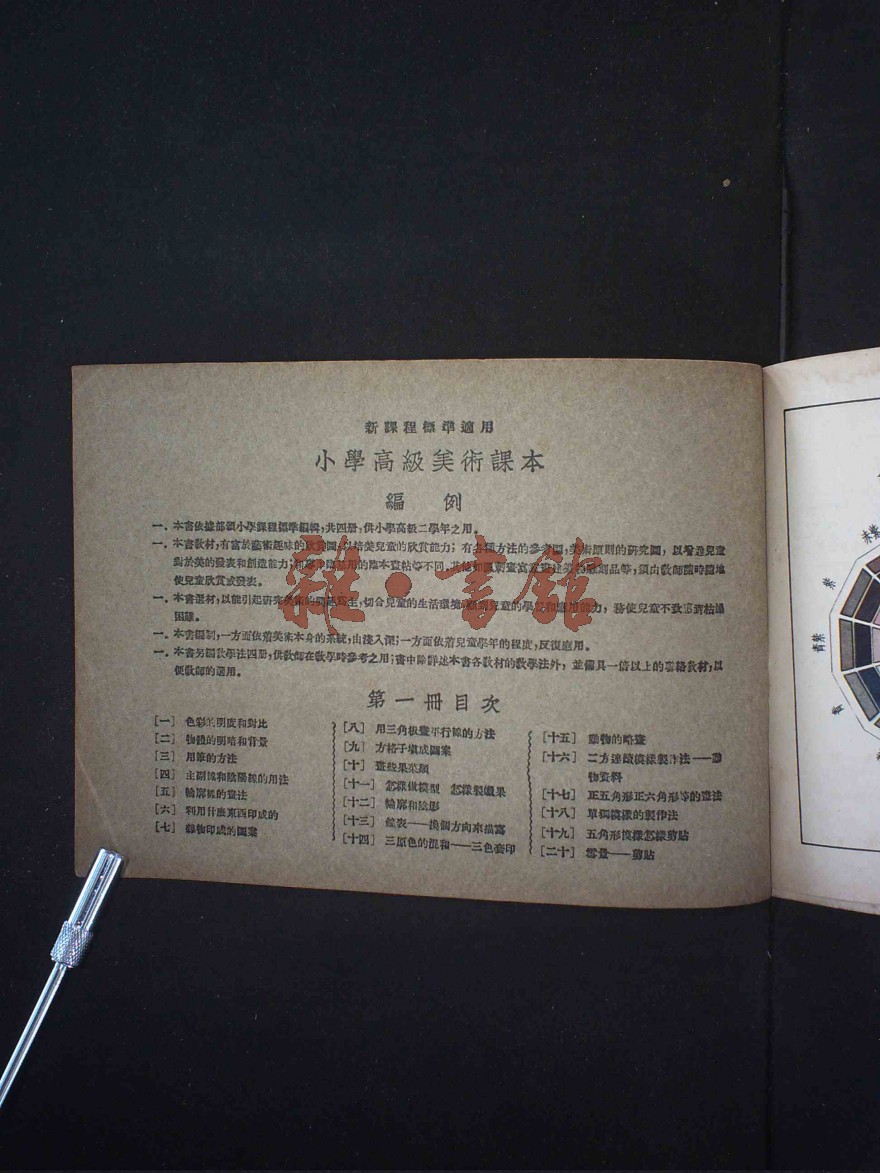 新課程標準適用
小學高級美術課本
編 例
一．本書依據部頒小學課程標準編輯，共四册，供小學高級二學年之用。
一．本書教材，有富於藝術趣味的欣賞圖，以培美兒童的欣賞能力；有各種方法的參考圖，美術原則的研究圖，以養造兒童
對於美的發表和創造能力；和專
使兒童欣賞或發表。
一．本書選材，以能引起研究美術的
困難。
一．本書編制，一方面依着美術本身的系統，由淺入深；一方面依着兒童學年的程度，反復應用。
一．本書另編教學法四册，供教師在教學時參考之用；書中除詳述本書各教材的教學法外，並備具一倍以上的聯絡教材，以
便教師的選用。
第一冊目次
[一] 色彩的明度和對比
[二] 物體的明暗和背景
[三] 用筆的方法
[四] 主副線和陰陽線的用法
[五] 輪廓線的畫法
[六] 利用什麽東西印成的
[七] 雜物印成的圖案
[八] 用三角板畫平行線的方法
[九] 方格子填成圖案
[十] 畫些果菜類
[十一] 怎樣做模型 怎樣製蠟果
[十二] 輪廓和陰影
[十三] 鐘表——換個方向來描寫
[十四] 三原色的混和——三色套印
[十五] 動物的略畫
[十六] 二方連續模樣製作法——動
物資料
[十七] 正五角形正六角形等的畫法
[十八] 單獨模樣的製作法
[十九] 五角形模樣怎樣剪貼
[二十] 雪景——剪貼
雜·書館
紫
青紫